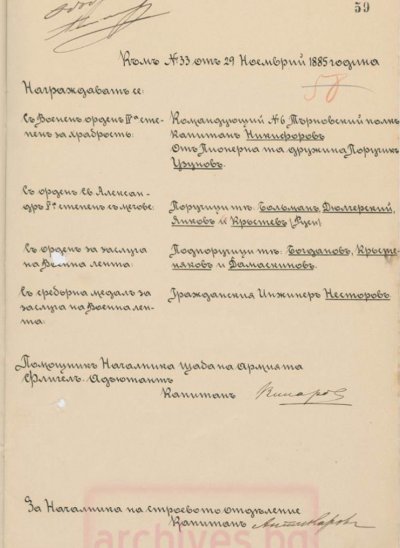 59
Къмъ №33 отъ 29 Ноемврий 1885 година
58
Награждаватъ се:
Съ Воененъ орденъ IV<sup>а</sup> сте-
пень за храбрость:
Командующий №6 Търновский полкъ
Капитанъ Никифоровъ
Отъ Пионерна та дружина Поручикъ
Узуновъ.
Съ орденъ Св. Алексан-
дръ V<sup>а</sup> степень съ мечове:
Поручици тѣ: Больманъ, Дюлгерский,
Янковъ и Кръстевъ (Руси)
Съ орденъ за заслуга
на Военна лента:
Подпоручици тѣ: Богдановъ, Кръсте-
няковъ и Дамаскиновъ.
Съ сребърна медалъ за
заслуга на Военна лен-
та:
Гражданския Инженеръ Несторовъ
Помощникъ Началника щаба на Армия та
Флигел-Адютантъ
Капитанъ
За Началника на строевото отдѣление
Капитанъ
archives.bg